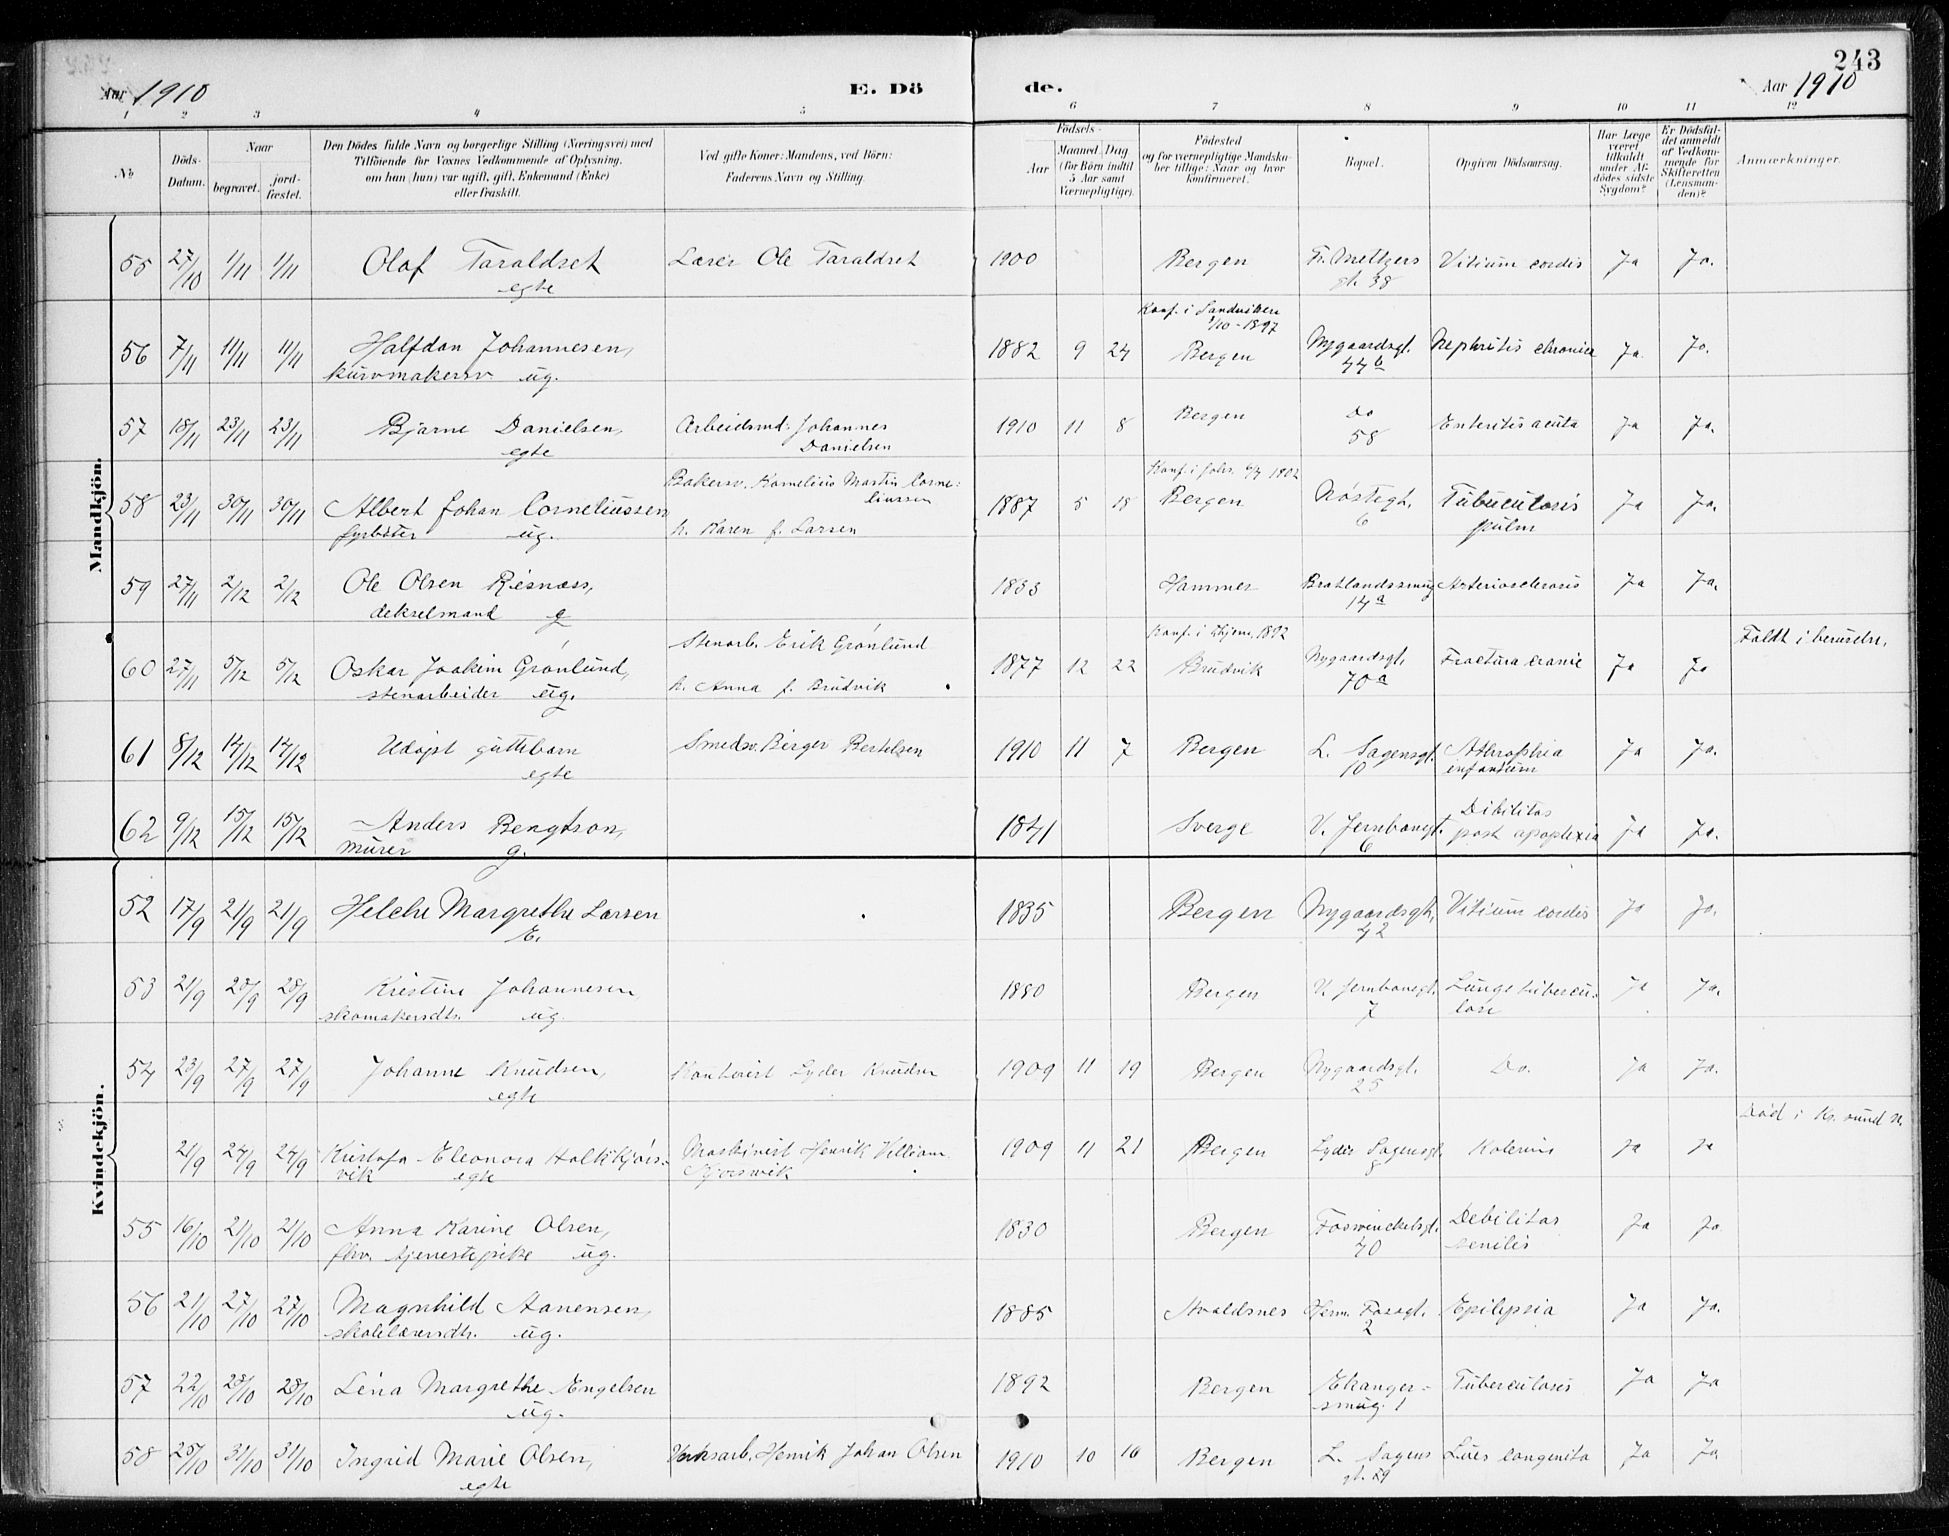 243
Aar 1910 E. Dö de. Aar 1910
1 2 3 4 5 6 7 8 9 10 11 12
No
Döds-Datum.
Naar
begravet.
jord-fæstet.
Den Dödes fulde Navn og borgerlige Stilling (Næringsvei) med
Tilföiende for Voxnes Vedkommende af Oplysning,
om han (hun) var ugift, gift, Enkemand (Enke)
eller fraskilt.
Ved gifte Koner: Mandens, ved Börn:
Faderens Navn og Stilling.
Födsels-
Aar Maaned. Dag
(for Börn indtil
5 Aar samt
Værnepligtige).
Födested
og for værnepligtige Mandska-
ber tillige: Naar og hvor
konfirmeret.
Bopæl.
Opgiven Dödsaarsag.
Har Læge
været
tilkaldt
under Af-
dödes sidste
Sygdom?
Er Dödsfal-
det anmeldt
af Vedkom-
mende for
Skifteretten
(Lensman-
den)?
Anmærkninger.
Mandkjön.
55 27/10 1/11 1/11 Olaf Taraldset Lærer Ole Taraldset 1900 Bergen Fr. Meltzers Vitium cordis Ja Ja.
egte gt. 38
Konf. i Sandviken
1/10-1897
56 7/11 11/11 11/11 Halfdan Johannesen, 1882 9 24 Bergen Nygaardsgt. Nephritis chronica Ja Ja.
kurvmakersv. ug. 44b
57 18/11 23/11 23/11 Bjarne Danielsen, Arbeidsmd. Johannes 1910 11 8 Bergen Do Enteritis acuta Ja Ja.
egte Danielsen 58
Bakersv. Kornelius Martin Corne- Konf. i Johs. 6/4 1902
liussen
58 23/11 30/11 30/11 Albert Johan Corneliussen 1887 5 18 Bergen Nöstegt. Tubuculosis Ja Ja.
fyrböter ug. h. Karen f. Larsen 6 pulm
59 27/11 2/12 2/12 Ole Olsen Risnæss, 1833 Hammer Bratlandssmug Arteriosclerosis Ja Ja.
dekselmand g 14a
Stenarb. Erik Grönlund 1892 Faldt i beruselse.
60 27/11 5/12 5/12 Oskar Joakim Grönlund, 1877 12 22 Brudvik Nygaardsgt. Fractura cranie Ja Ja
stenarbeider ug. h. Anna f. Brudvik 70a
61 8/12 14/12 14/12 Udöpt guttebarn Smedsv. Birger Bertelsen 1910 11 7 Bergen L. Sagensgt. Athrophia Ja Ja.
egte 10 infantum
62 9/12 15/12 15/12 Anders Bengtson, 1841 Sverge V. Jernbanegt. Dibilitas Ja Ja.
murer g. 6 post apoplexia
Kvindekjön.
52 17/9 21/9 21/9 Helche Margrethe Larsen 1835 Bergen Nygaardsgt. Vitium cordis Ja Ja.
E. 42
53 21/9 28/9 28/9 Kristine Johannesen, 1890 Bergen V. Jernbanegt. Lungetubercu- Ja Ja.
skomakersdtr. ug. 7 lose
54 23/9 27/9 27/9 Johanne Knudsen, Kontorist Lyder Knudsen 1909 11 19 Bergen Nygaardsgt. Do. Ja Ja.
egte 25
Död i Kr. sund N.
21/9 24/9 24/9 Kristofa Eleonora Kjörs- Maskinist Henrik Villiam 1909 11 21 Bergen Lyder Sagensgt. Kolerine Ja Ja
vik egte Kjörsvik 8
55 16/10 21/10 21/10 Anna Karine Olsen, 1830 Bergen Fosswinckelsgt. Debilitas Ja Ja
fhv. tjenestepike ug. 40 senilis
56 21/10 27/10 27/10 Magnhild Aanensen, 1885 Avaldsnes Herm. Fossgt. Epilepsia Ja Ja.
skolelærersdtr. ug. 2
57 22/10 28/10 28/10 Lina Margrethe Engelsen 1892 Bergen Ekanger- Tuberculosis Ja Ja
ug. smug. 1
58 25/10 31/10 31/10 Ingrid Marie Olsen, Verksarb. Henrik Johan Olsen 1910 10 16 Bergen L. Sagens Lues congenita Ja Ja.
egte gt. 29